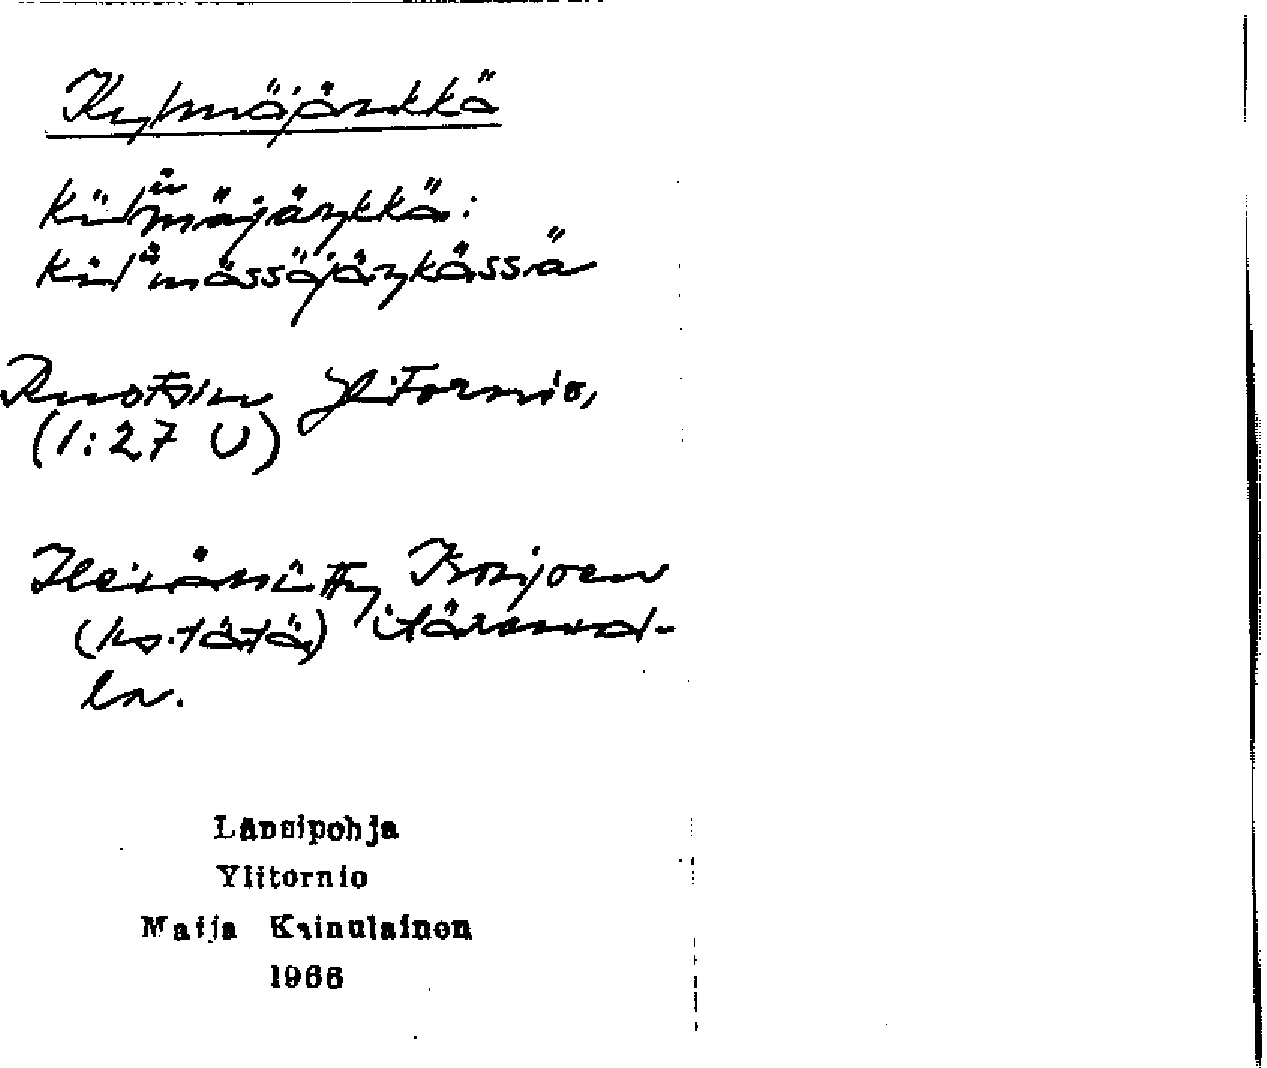 Kylmäjänkkä
külümäjäŋkkä:
külämässäjäŋkässä
Ruotsin Ylitornio,
(1:27 U)
Heinäniitty Korijoen
(ks. tätä) itärannal-
la.
Länsipohja
Ylitornio
Maija Kainulainen
1966